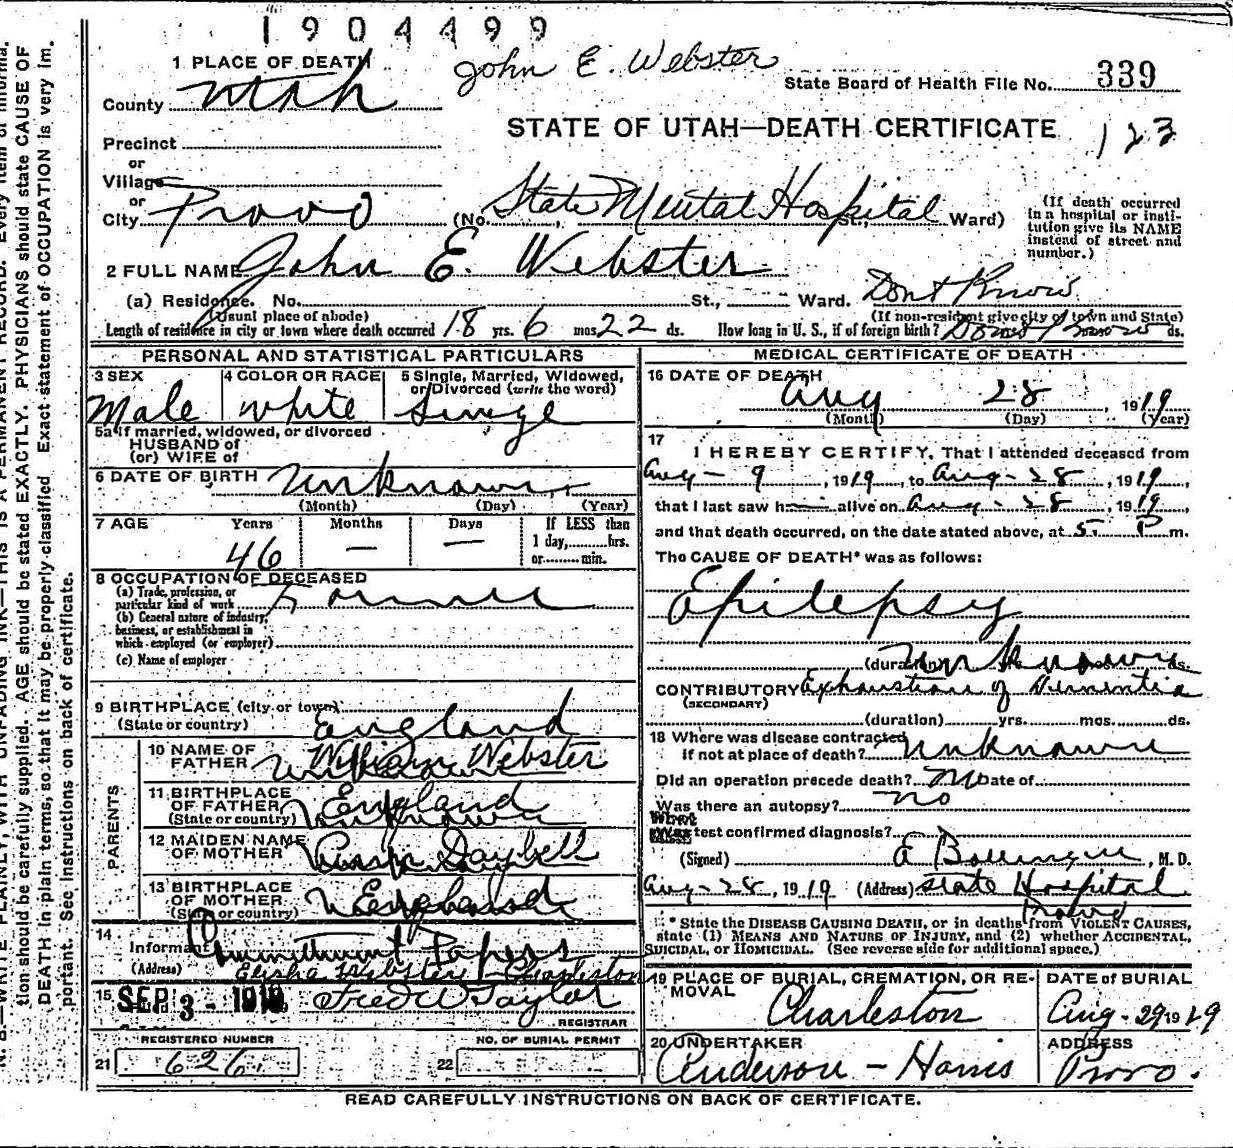 1904499
John E. Webster
1 PLACE OF DEATH
County Utah
State Board of Health File No. 339
STATE OF UTAH—DEATH CERTIFICATE 123
Precinct
or
Village
or
City Provo (No. State Mental Hospital St., Ward)
(If death occurred
in a hospital or insti-
tution give its NAME
instead of street and
number.)
2 FULL NAME John E. Webster
(a) Residence. No. St., Ward. Dont Know
(Usual place of abode) (If non-resident give city or town and State)
Length of residence in city or town where death occurred 18 yrs. 6 mos. 22 ds. How long in U. S., if of foreign birth? Dont Know ds.
PERSONAL AND STATISTICAL PARTICULARS
3 SEX
Male
4 COLOR OR RACE
White
5 Single, Married, Widowed,
or Divorced (write the word)
Single
5a If married, widowed, or divorced
HUSBAND of
(or) WIFE of
6 DATE OF BIRTH Unknown
(Month) (Day) (Year)
7 AGE Years Months Days
46 — —
If LESS than
1 day,........hrs.
or..........min.
8 OCCUPATION OF DECEASED
(a) Trade, profession, or
particular kind of work Farmer
(b) General nature of industry,
business, or establishment in
which employed (or employer)
(c) Name of employer
9 BIRTHPLACE (city or town)
(State or country) England
PARENTS
10 NAME OF
FATHER William Webster
11 BIRTHPLACE
OF FATHER England
(State or country)
12 MAIDEN NAME
OF MOTHER Ann Daybell
13 BIRTHPLACE
OF MOTHER England
(State or country)
14
Informant Commitment Papers
(Address) Elisha Webster Charleston
15 SEP 3 - 1919 Fred W Taylor
REGISTRAR
REGISTERED NUMBER
21 626
NO. OF BURIAL PERMIT
22
MEDICAL CERTIFICATE OF DEATH
16 DATE OF DEATH
Aug 28, 1919
(Month) (Day) (Year)
17
I HEREBY CERTIFY, That I attended deceased from
Aug - 9, 1919, to Aug - 28, 1919,
that I last saw h alive on Aug - 28, 1919,
and that death occurred, on the date stated above, at 5. P m.
The CAUSE OF DEATH* was as follows:
Epilepsy
(duration) Unknown ds.
CONTRIBUTORY Exhaustion of Dementia
(SECONDARY)
(duration) yrs. mos. ds.
18 Where was disease contracted
if not at place of death? Unknown
Did an operation precede death? No Date of
Was there an autopsy? No
What
test confirmed diagnosis?
(Signed) , M. D.
Aug - 28, 1919 (Address) State Hospital
Provo
* State the DISEASE CAUSING DEATH, or in deaths from VIOLENT CAUSES,
state (1) MEANS AND NATURE OF INJURY, and (2) whether ACCIDENTAL,
SUICIDAL, or HOMICIDAL. (See reverse side for additional space.)
19 PLACE OF BURIAL, CREMATION, OR RE-
MOVAL
Charleston
DATE of BURIAL
Aug - 29 1919
20 UNDERTAKER
Anderson - Harris
ADDRESS
Provo.
READ CAREFULLY INSTRUCTIONS ON BACK OF CERTIFICATE.
N. B.—WRITE PLAINLY, WITH UNFADING INK—THIS IS A PERMANENT RECORD. Every item of informa-
tion should be carefully supplied. AGE should be stated EXACTLY. PHYSICIANS should state CAUSE OF
DEATH in plain terms, so that it may be properly classified. Exact statement of OCCUPATION is very im-
portant. See instructions on back of certificate.